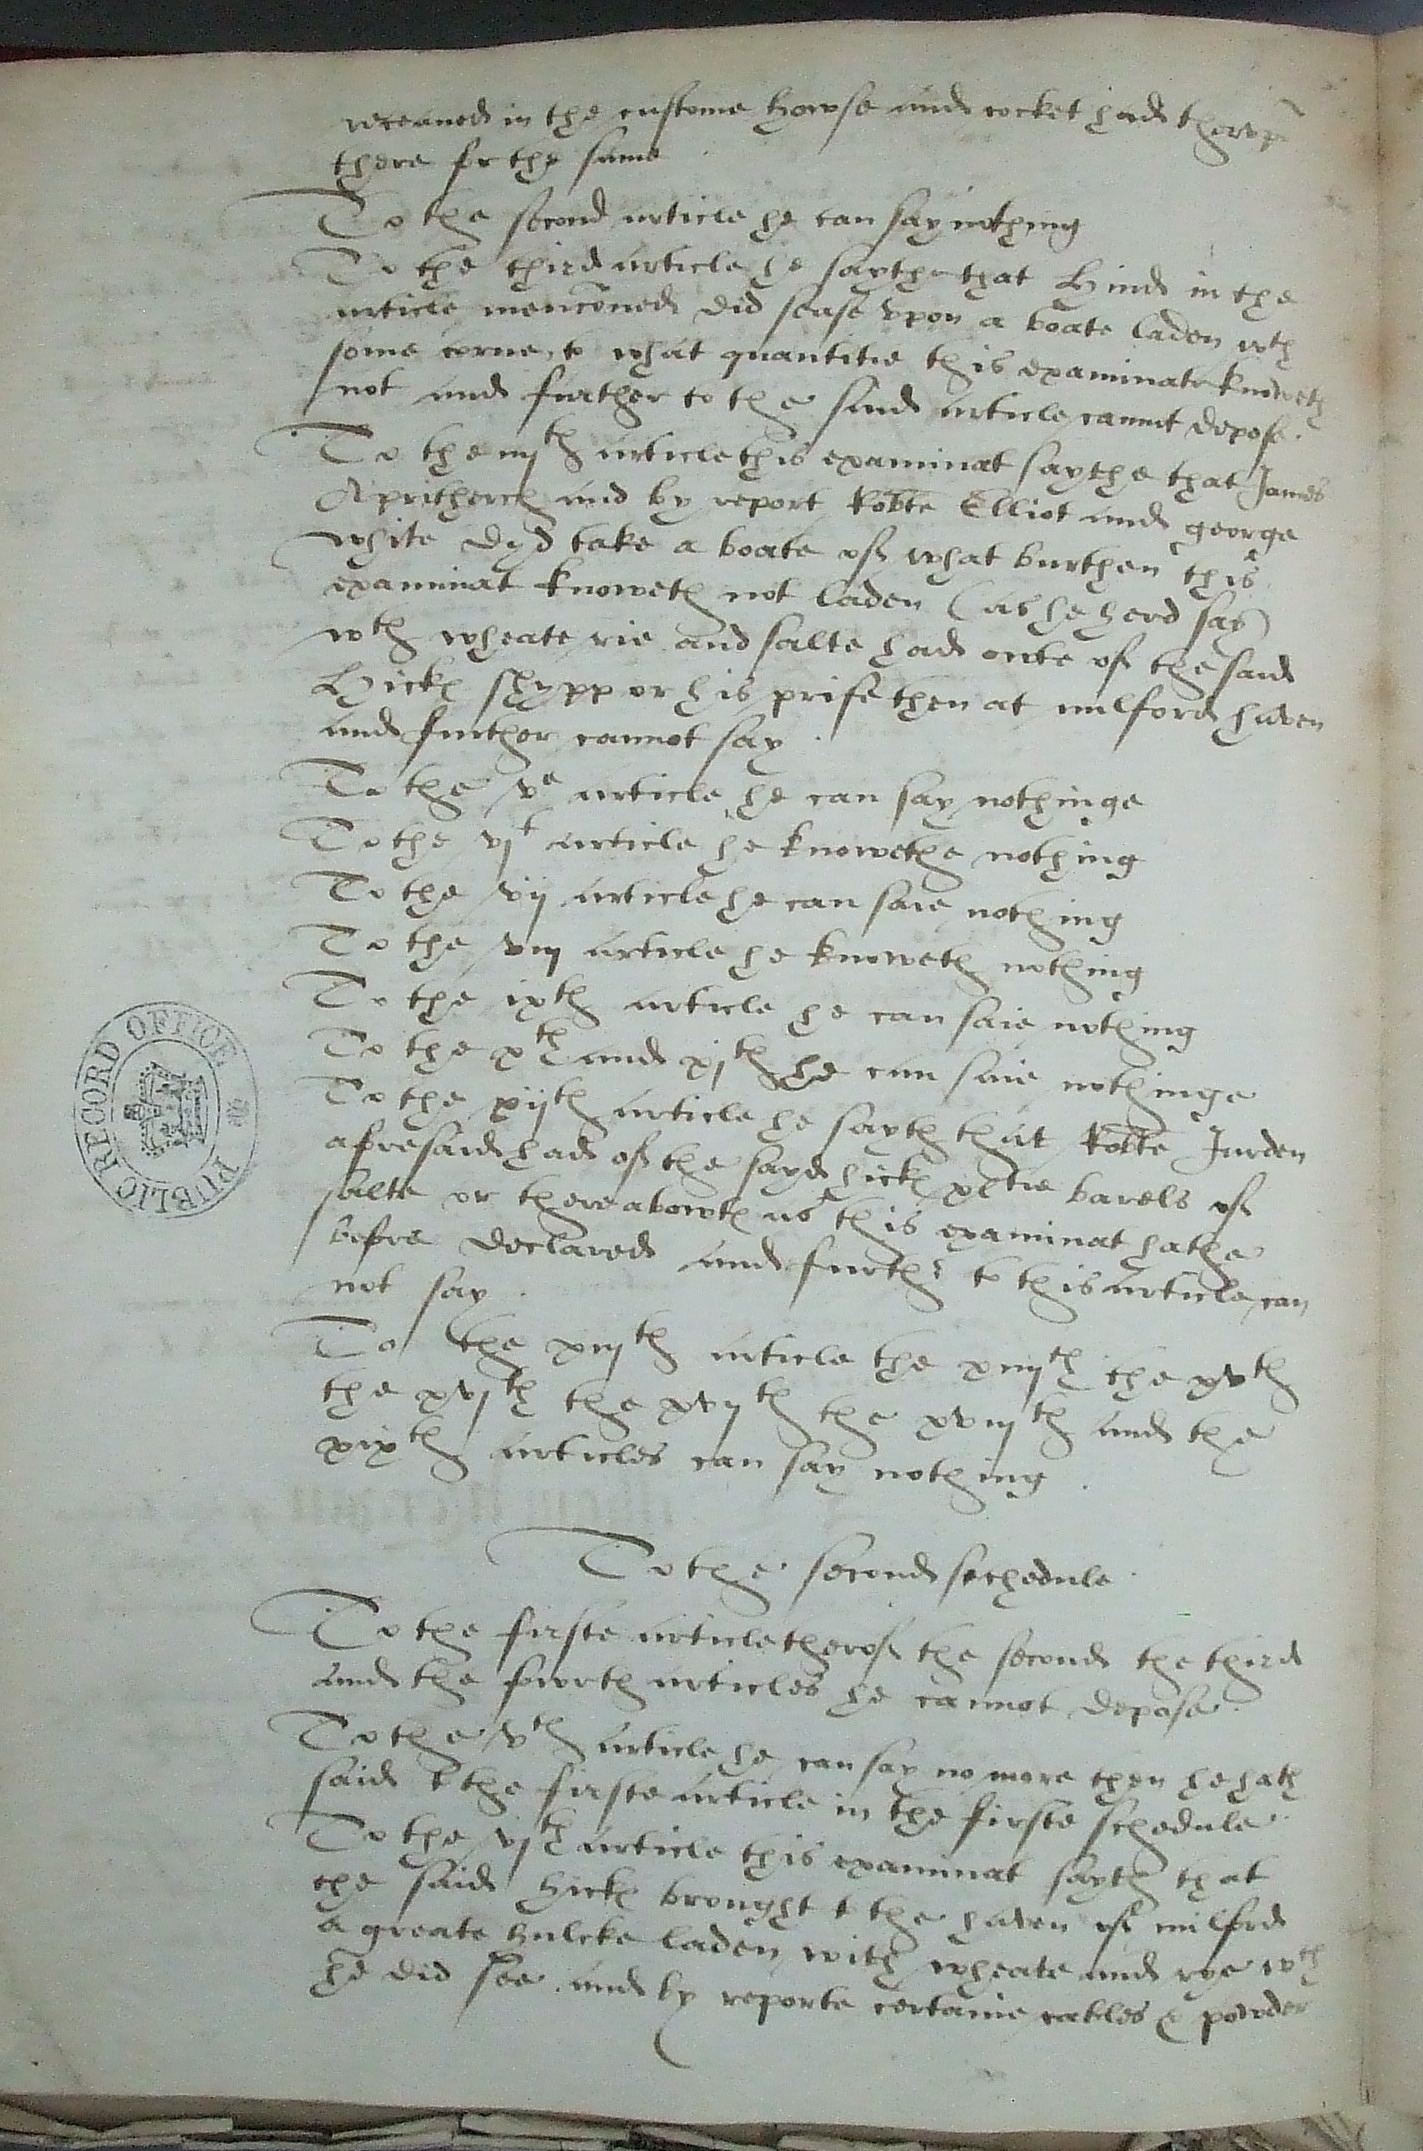 receaved in the custome howse and cocket had therup
there for the same
To the second article he can say nothing
To the third article he saythe that Hind in the
article mencõned did sease vpon a boate laden wth
some corne, to what quantitie this examinate knoweth
not and further to the said article cannot depose.
To the iiijth article this examinat saythe that James
Apritherch and by report Robte Elliot and george
white dyd take a boate of what burthen this
examinat knoweth not laden (as he herd say)
wth wheate rie and salte had owte of the said
Hicks shypp or his prise then at milford haven
and further cannot say.
To the ve article he can say nothinge
To the vjt article he knowethe nothing
To the vij article he can saie nothing
To the viij article he knoweth nothing
To the ixth article he can saie nothing
To the xth and xjth he can saie nothinge
To the xijth article he sayth that Robte Jurden
aforesaid had of the sayd hicks xltie barels of
salte or thereabowts as this examinat hathe
before declared and further to this article can
not say.
To the xiijth article the xiiijth the xvth
the xvjth the xvijth the xviijth and the
xixth articles can say nothing.
To the second schedule
To the firste article therof the second the third
and the fowrth articles he cannot depose.
To the vth article he can say no more then he hath
said to the firste article in the firste schedule.
To the vjth article this examinat sayth that
the said Hicks brought to the haven of milford
a greate hulcke laden with wheate and rye wch
he did see and by reporte certaine cables & powder
PUBLIC RECORD OFFICE